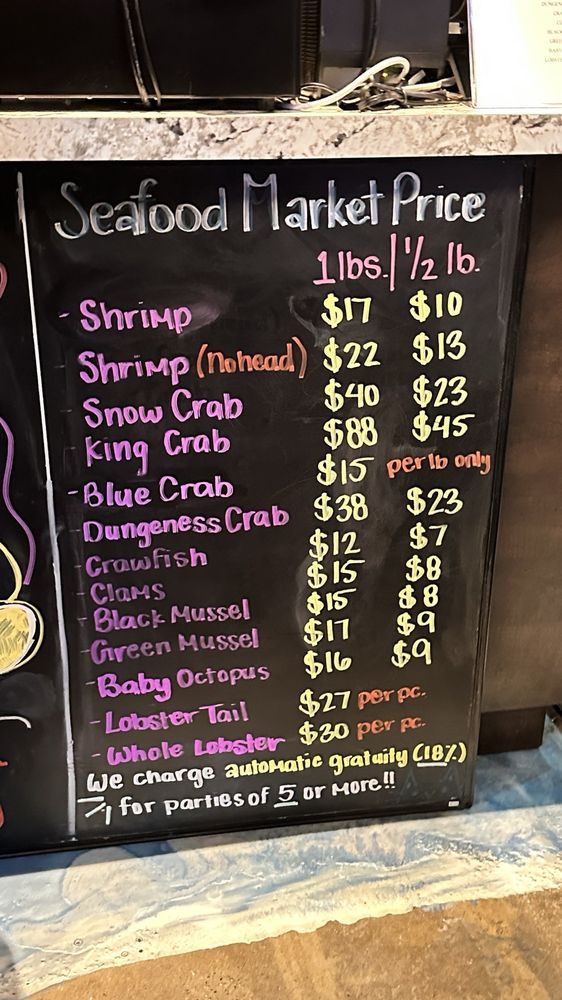 Seafood Market Price
1 lbs. | 1/2 lb.
- Shrimp $17 $10
- Shrimp (No head) $22 $13
- Snow Crab $40 $23
- King Crab $88 $45
- Blue Crab $15 per lb only
- Dungeness Crab $38 $23
- Crawfish $12 $7
- Clams $15 $8
- Black Mussel $15 $8
- Green Mussel $17 $9
- Baby Octopus $16 $9
- Lobster Tail $27 per pc.
- Whole Lobster $30 per pc.
We charge automatic gratuity (18%)
for parties of 5 or more!!